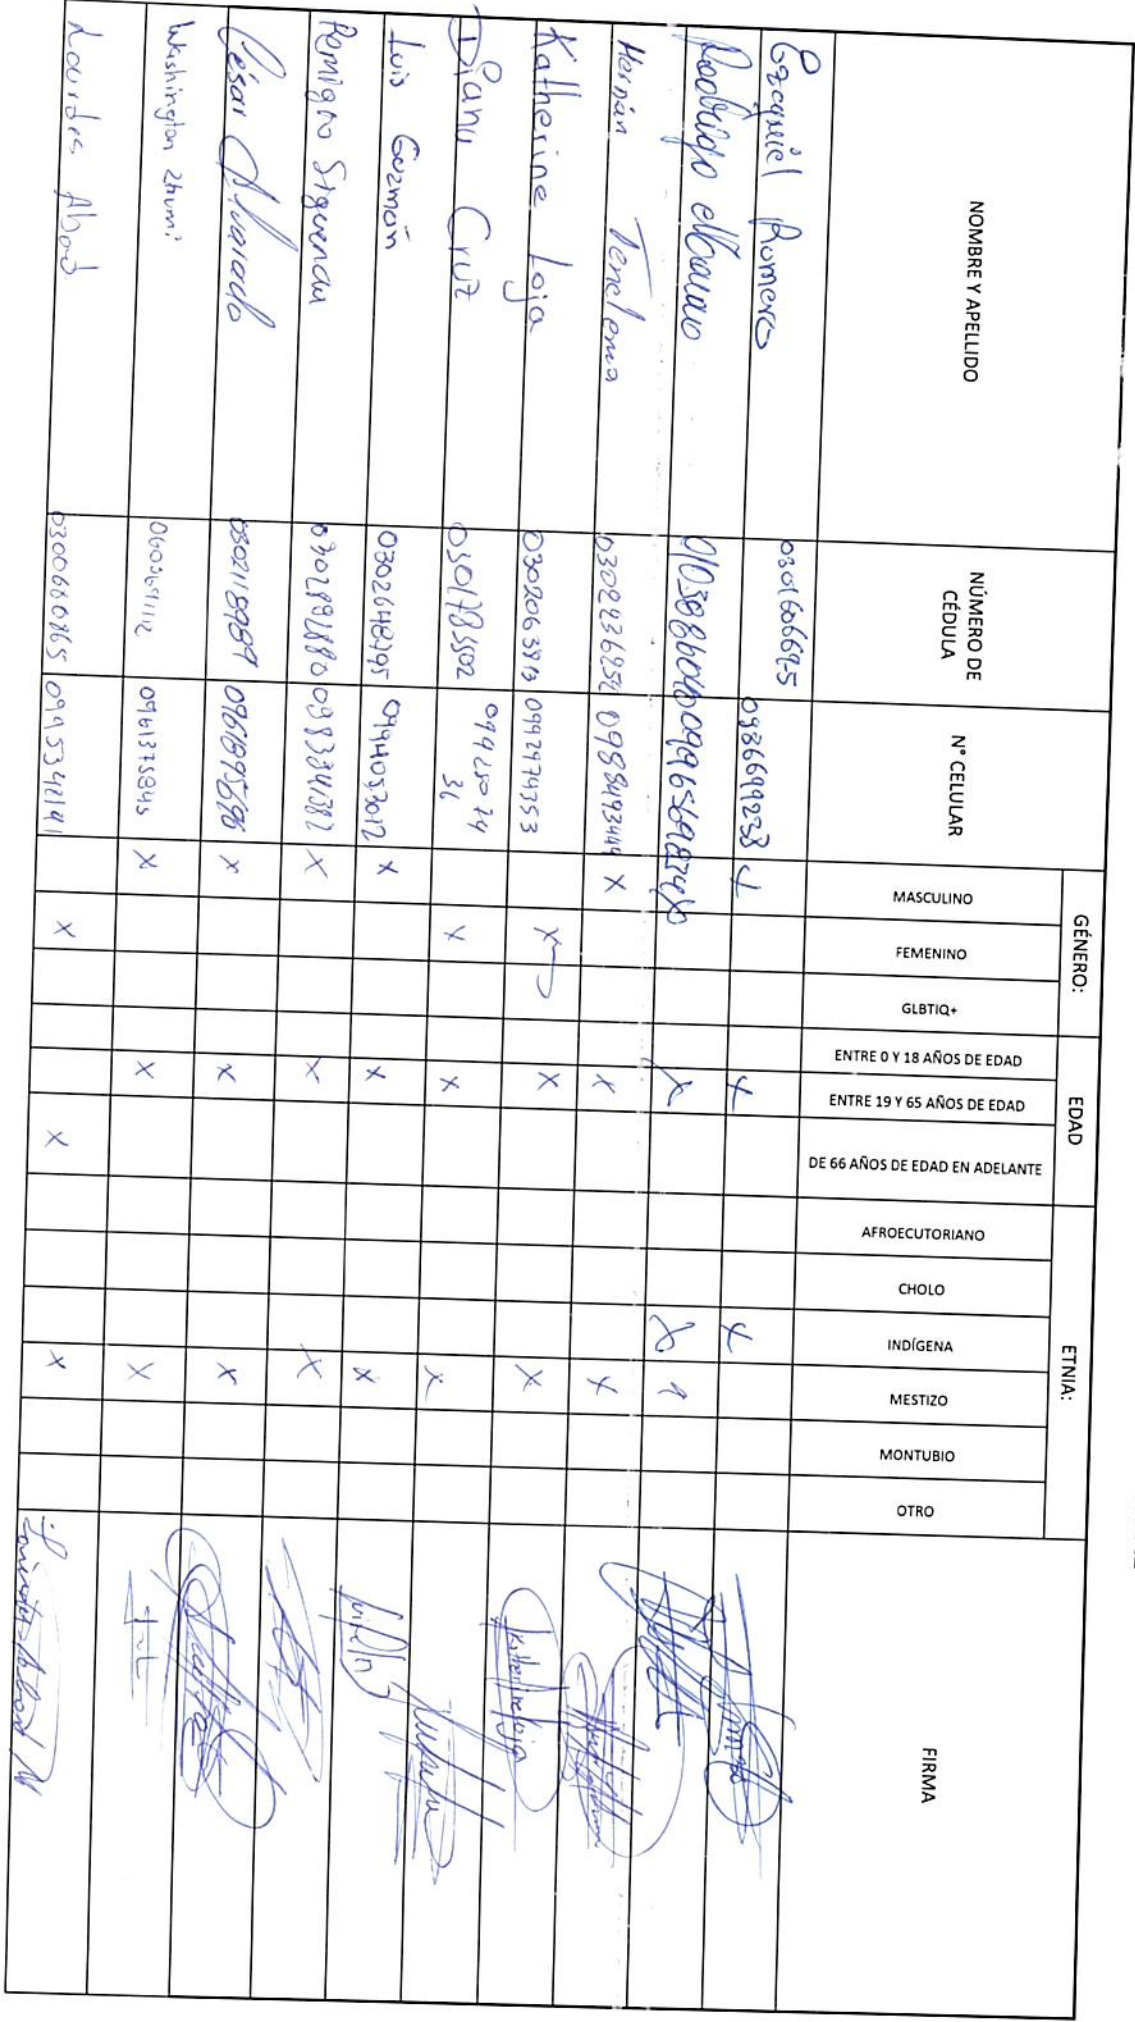 NOMBRE Y APELLIDO
NÚMERO DE CÉDULA
N° CELULAR
GÉNERO:
MASCULINO
FEMENINO
GLBTIQ+
EDAD
ENTRE 0 Y 18 AÑOS DE EDAD
ENTRE 19 Y 65 AÑOS DE EDAD
DE 66 AÑOS DE EDAD EN ADELANTE
ETNIA:
AFROECUTORIANO
CHOLO
INDÍGENA
MESTIZO
MONTUBIO
OTRO
FIRMA
Ezequiel Romero 030160669-5 0986699238 X X X
Rodrigo X X
Hernán Tenelema 0988493444 X X X
Katherine Loja 0992974353 X X X Katherine Loja
Diana Cruz 0301785502 09925074 36 X X X
Luis Guzmán 0302648295 0994053012 X X X
Remigio Siguencia 0983341382 X X X
César Alvarado 0302118989 0961895696 X X X
Washington Zhumi 0603651112 0961375845 X X X
Lourdes Abad 0300680865 0995342141 X X X Lourdes Abad M